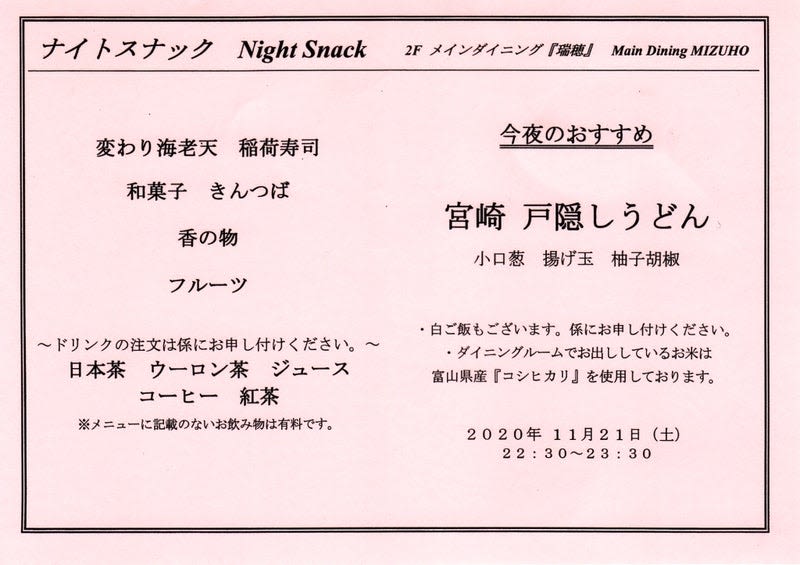 ナイトスナック Night Snack 2F メインダイニング『瑞穂』 Main Dining MIZUHO
変わり海老天 稲荷寿司
和菓子 きんつば
香の物
フルーツ
～ドリンクの注文は係にお申し付けください。～
日本茶 ウーロン茶 ジュース
コーヒー 紅茶
※メニューに記載のないお飲み物は有料です。
今夜のおすすめ
宮崎 戸隠しうどん
小口葱 揚げ玉 柚子胡椒
・白ご飯もございます。係にお申し付けください。
・ダイニングルームでお出ししているお米は
富山県産『コシヒカリ』を使用しております。
２０２０年 １１月２１日（土）
２２：３０～２３：３０